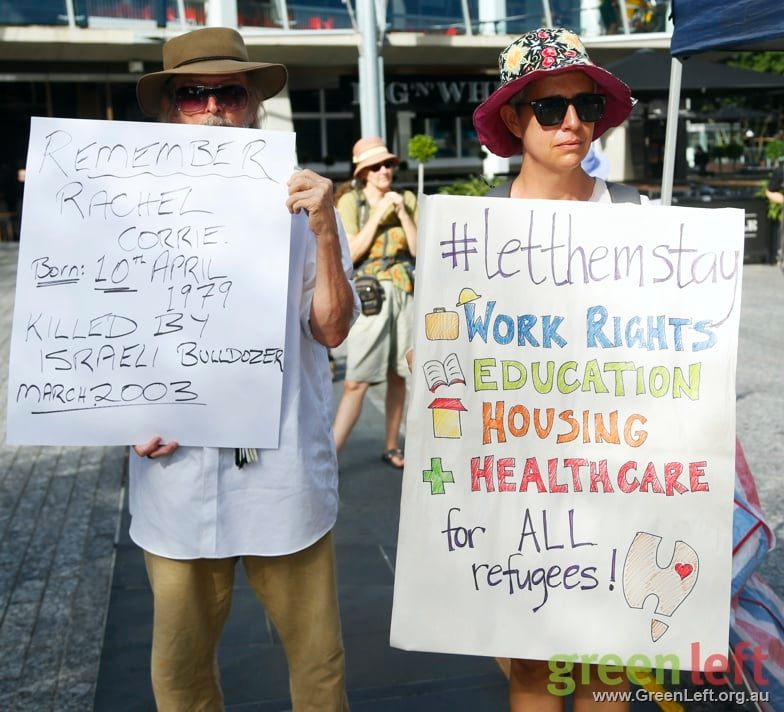 REMEMBER
RACHEL
CORRIE.
Born: 10TH APRIL
1979
KILLED BY
ISRAELI BULLDOZER
MARCH 2003
#letthemstay
WORK RIGHTS
EDUCATION
HOUSING
HEALTHCARE
for ALL
refugees!
green left
www.GreenLeft.org.au